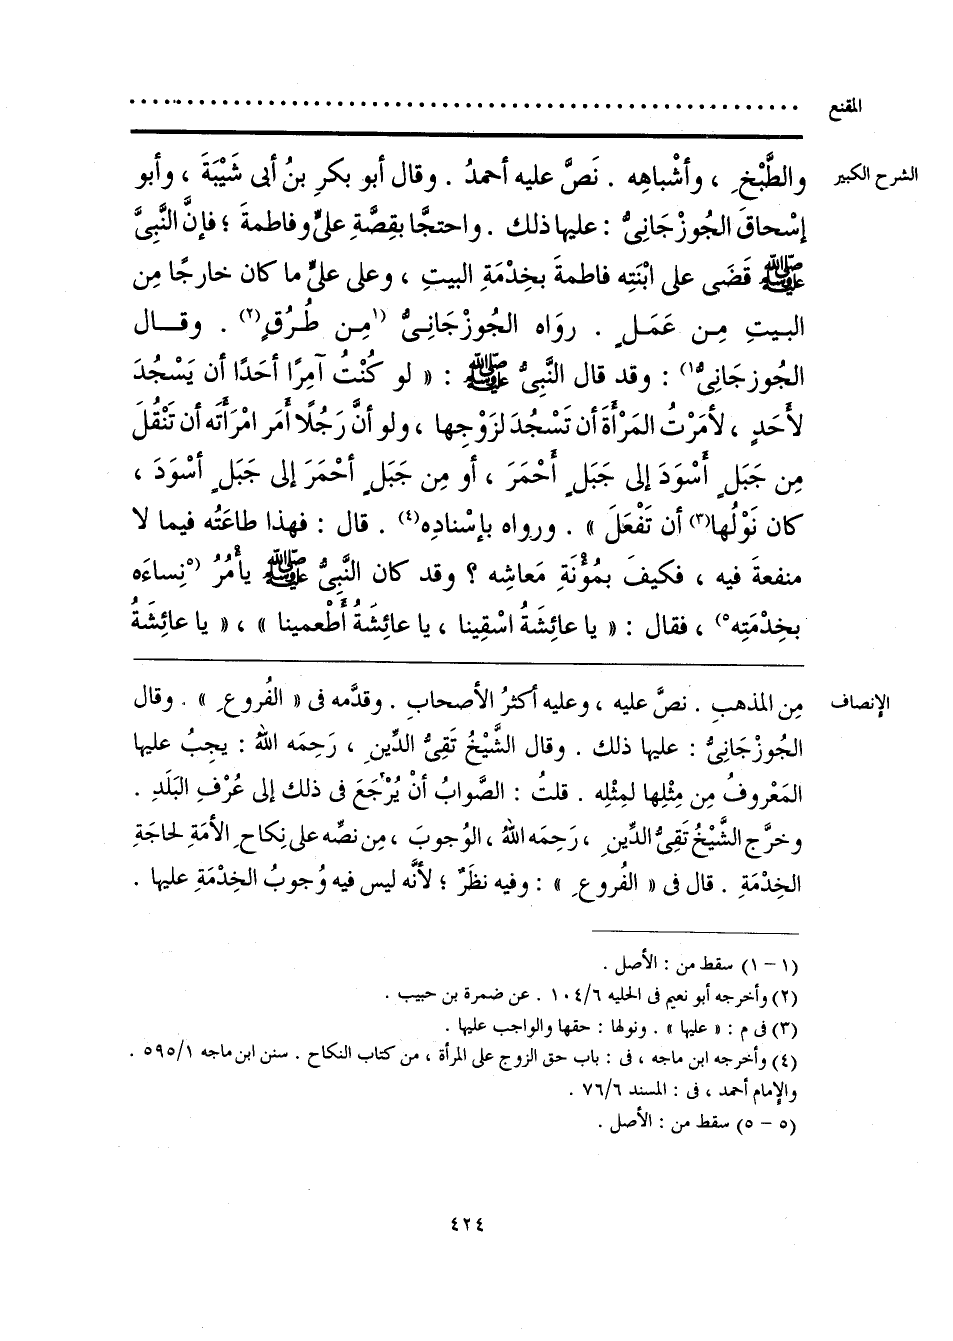 المقنع ................................................................
الشرح الكبير والطَّبْخِ ، وأشْباهِه . نَصَّ عليه أحمدُ . وقال أبو بكرِ بنُ أبى شَيْبَةَ ، وأبو
إسْحاقَ الجُوزْجَانِىُّ : عليها ذلك . واحتجَّا بقِصَّةِ علىٍّ وفاطمةَ ؛ فإنَّ النَّبِىَّ
ﷺ قَضَى على ابْنَتِه فاطمةَ بخِدْمَةِ البيتِ ، وعلى علىٍّ ما كان خارجًا مِن
البيتِ مِن عَمَلٍ . رواه الجُوزْجَانِىُّ (١مِن طُرُقٍ(٢) . وقال
الجُوزجَانِىُّ١) : وقد قال النَّبِىُّ ﷺ : « لو كُنْتُ آمِرًا أحَدًا أن يَسْجُدَ
لأَحَدٍ ، لأمَرْتُ المَرْأةَ أن تَسْجُدَ لزَوْجِها ، ولو أنَّ رَجُلًا أمَر امْرَأتَه أن تَنْقُلَ
مِن جَبَلٍ أسْوَدَ إلى جَبَلٍ أحْمَرَ ، أو مِن جَبَلٍ أحْمَرَ إلى جَبَلٍ أسْوَدَ ،
كان نَوْلُها(٣) أن تَفْعَلَ » . ورواه بإسْنادِه(٤) . قال : فهذا طاعَتُه فيما لا
منفعةَ فيه ، فكيفَ بمُؤْنَةِ مَعاشِه ؟ وقد كان النَّبِىُّ ﷺ يأْمُرُ (٥نِساءَه
بخِدْمَتِه٥) ، فقال : « يا عائِشَةُ اسْقِينا ، يا عائِشَةُ أَطْعمِينا » ، « يا عائِشَةُ
الإنصاف مِن المذهبِ . نصَّ عليه ، وعليه أكثرُ الأصحابِ . وقدَّمه فى « الفُروعِ » . وقال
الجُوزْجَانِىُّ : عليها ذلك . وقال الشَّيْخُ تَقِىُّ الدِّينِ ، رَحِمَه اللهُ : يجِبُ عليها
المَعْروفُ مِن مِثْلِها لمِثْلِه . قلتُ : الصَّوابُ أنْ يُرْجَعَ فى ذلك إلى عُرْفِ البَلَدِ .
وخرَّج الشَّيْخُ تَقِىُّ الدِّينِ ، رَحِمَه اللهُ ، الوُجوبَ ، مِن نصِّه على نِكاحِ الأمَةِ لحاجَةِ
الخِدْمَةِ . قال فى « الفُروعِ » : وفيه نظَرٌ ؛ لأنَّه ليس فيه وُجوبُ الخِدْمَةِ عليها .
(١ - ١) سقط من : الأصل .
(٢) وأخرجه أبو نعيم فى الحليه ١٠٤/٦ . عن ضمرة بن حبيب .
(٣) فى م : « عليها » . ونولها : حقها والواجب عليها .
(٤) وأخرجه ابن ماجه ، فى : باب حق الزوج على المرأة ، من كتاب النكاح . سنن ابن ماجه ٥٩٥/١ .
والإمام أحمد ، فى : المسند ٧٦/٦ .
(٥ - ٥) سقط من : الأصل .
٤٢٤